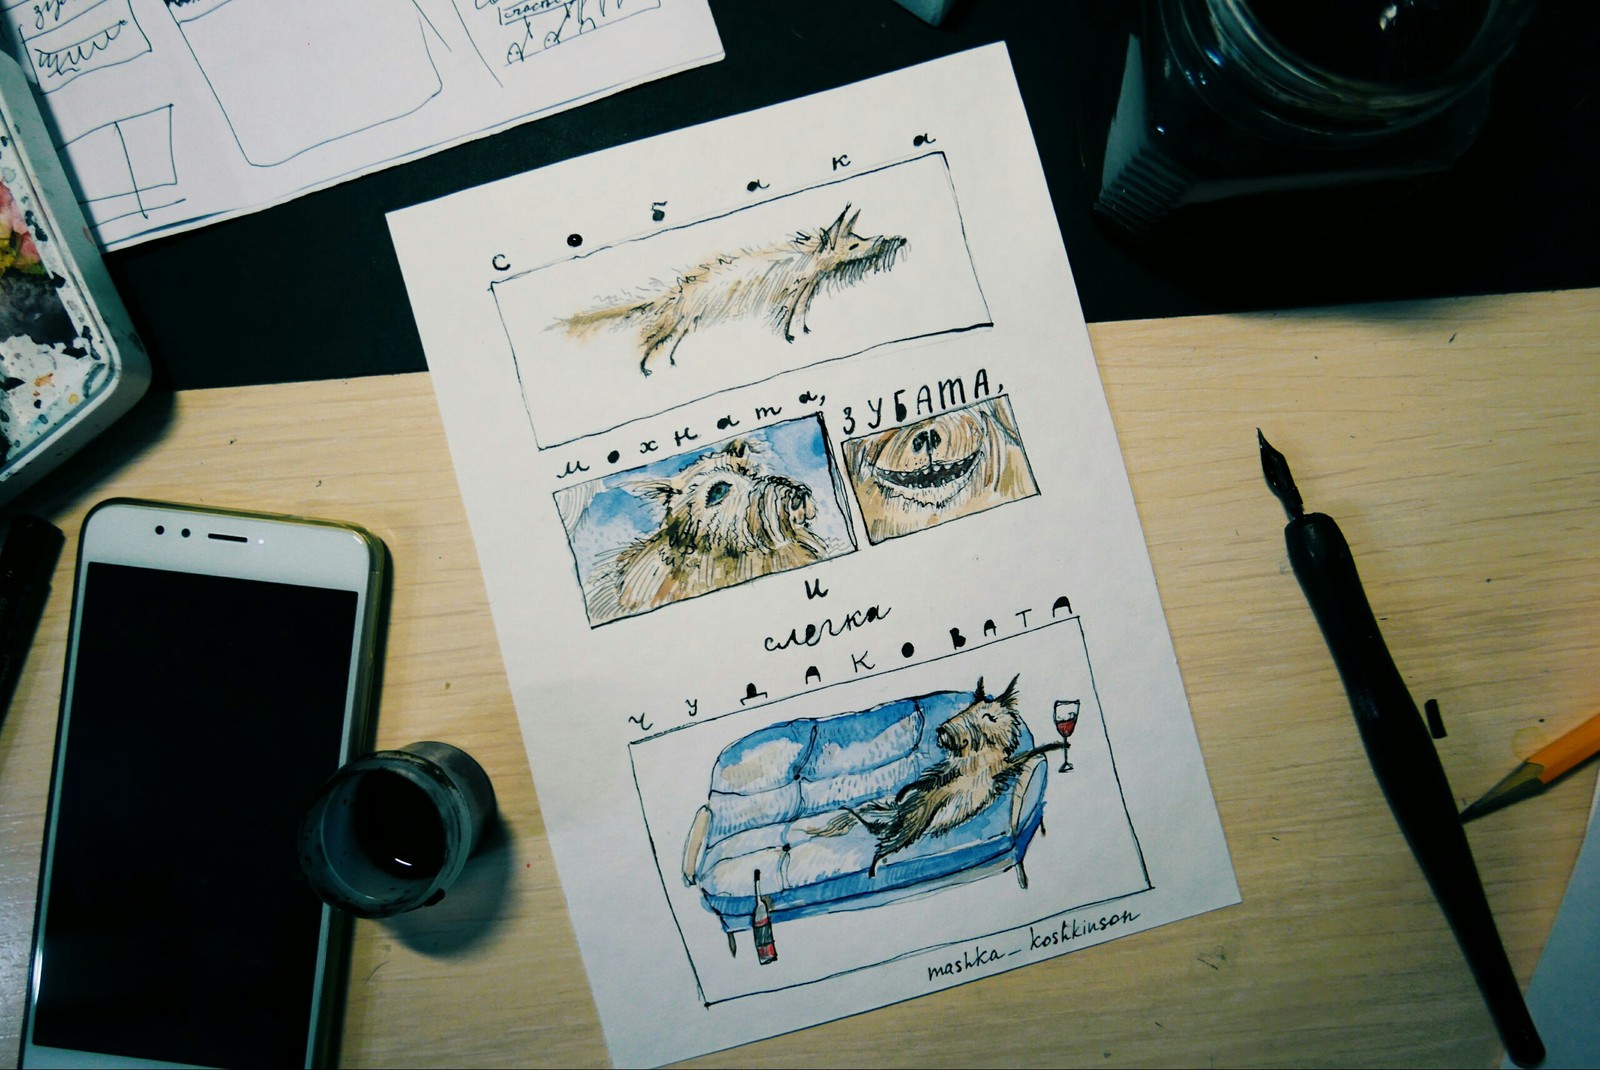 Собака
мохната,
ЗУБАТА,
и
слегка
ЧУДАКОВАТА
mashka_koshkinson